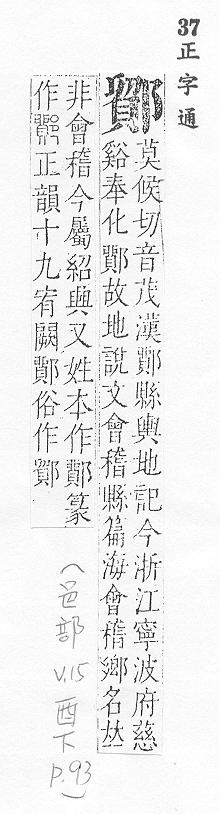 37正字通
鄮莫侯切音茂漢鄮縣輿地記今浙江寧波府慈
谿奉化鄮故地說文會稽縣篇海會稽鄉名𠀤
非會稽今屬紹興又姓本作鄮篆
作鄮正韻十九宥闕鄮俗作鄮
(邑部
V.15
酉下
P.93)